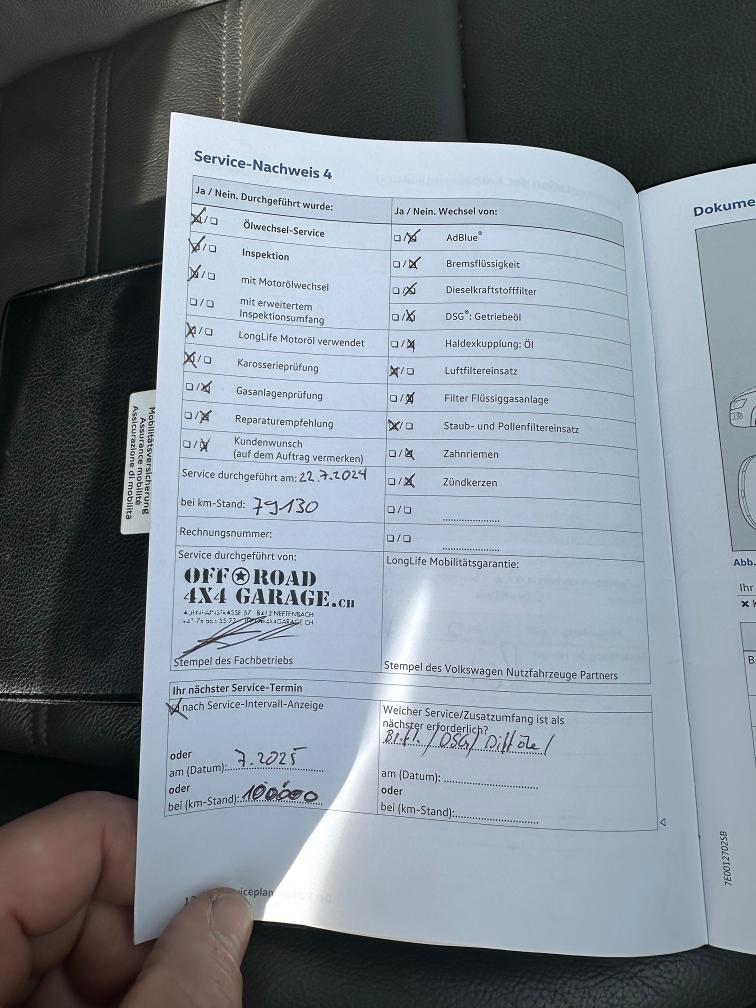 Service-Nachweis 4
Ja / Nein. Durchgeführt wurde:
☒/☐ Ölwechsel-Service
☒/☐ Inspektion
☒/☐ mit Motorölwechsel
☐/☐ mit erweitertem
Inspektionsumfang
☒/☐ LongLife Motoröl verwendet
☒/☐ Karosserieprüfung
☐/☒ Gasanlagenprüfung
☐/☒ Reparaturempfehlung
☐/☒ Kundenwunsch
(auf dem Auftrag vermerken)
Service durchgeführt am: 22.7.2024
bei km-Stand: 79130
Rechnungsnummer:
Service durchgeführt von:
OFF ROAD
4X4 GARAGE.CH
8413 NEFTENBACH
Stempel des Fachbetriebs
Ja / Nein. Wechsel von:
☐/☒ AdBlue®
☐/☒ Bremsflüssigkeit
☐/☒ Dieselkraftstofffilter
☐/☒ DSG®: Getriebeöl
☐/☒ Haldexkupplung: Öl
☒/☐ Luftfiltereinsatz
☐/☒ Filter Flüssiggasanlage
☒/☐ Staub- und Pollenfiltereinsatz
☐/☒ Zahnriemen
☐/☒ Zündkerzen
☐/☐
☐/☐
LongLife Mobilitätsgarantie:
Stempel des Volkswagen Nutzfahrzeuge Partners
Ihr nächster Service-Termin
☒ nach Service-Intervall-Anzeige
oder
am (Datum): 7.2025
oder
bei (km-Stand): 100000
Welcher Service/Zusatzumfang ist als
nächster erforderlich?
Br.fl. / DSG / Diff öle /
am (Datum):
oder
bei (km-Stand):
Mobilitätsversicherung
Assurance mobilité
Assicurazione di mobilità
Dokume
Abb.
Ihr
7E0012702SB